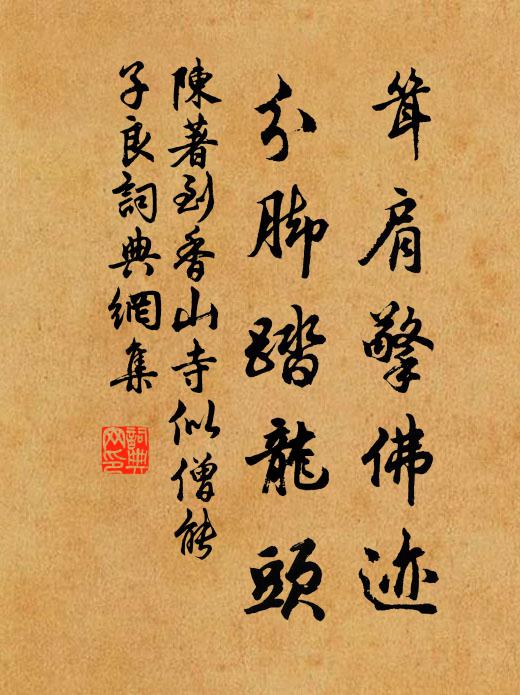 耸肩擎佛迹
分脚踏龍頭
陳著到香山寺似僧能
子良詞典網集
詞典網印